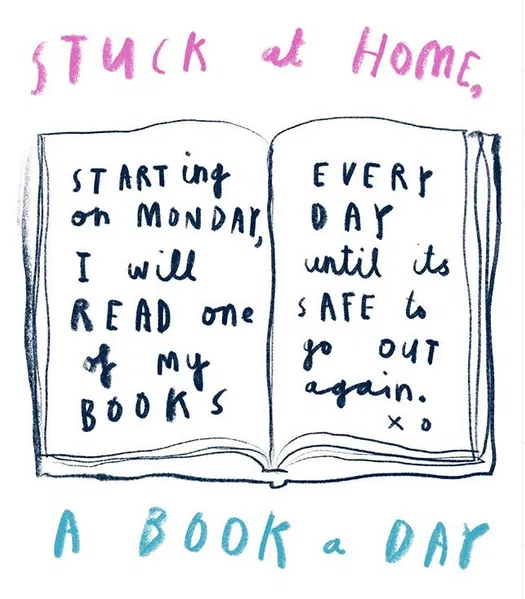 STUCK at HOME,
STARTing
on MONDAY,
I will
READ one
of my
BOOKS
EVERY
DAY
until its
SAFE to
go OUT
again.
x o
A BOOK a DAY